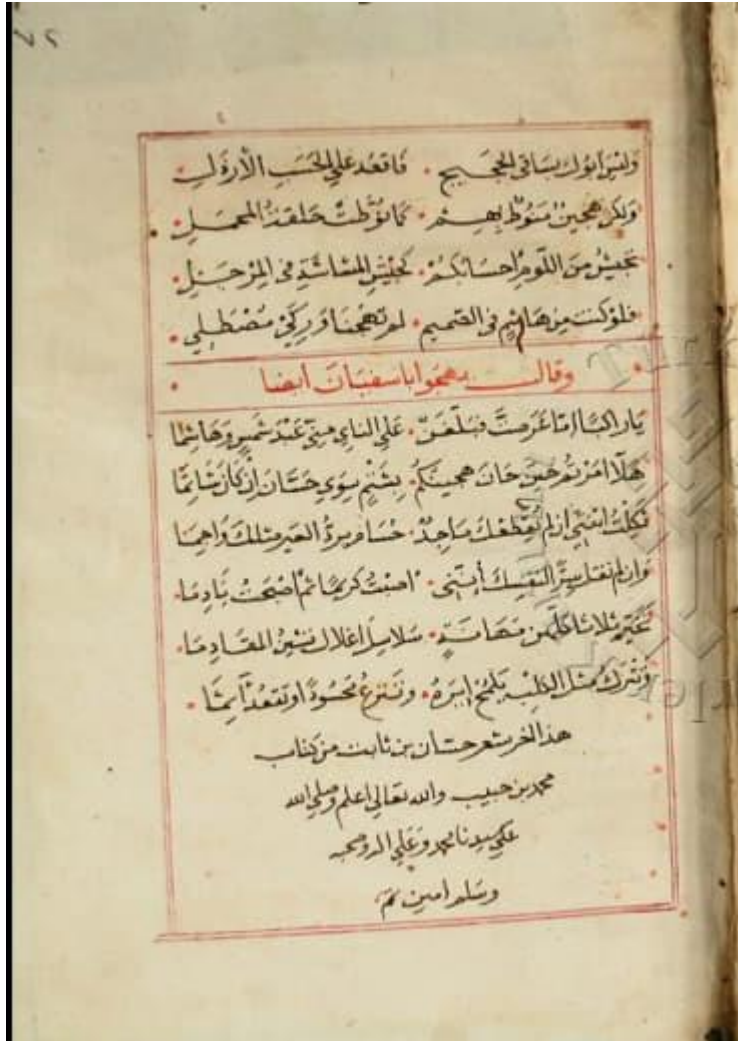 ٧٢
وليس ابوك بساقي الحجيج • فاقعد علي الحسب الأرذل
ولكن هجين منوط بهم • كما نوطت حلقة المحمل
تجيش من اللوم احسابكم • كجيش المشاشة في المرجل
فلو كنت من هاشم في الصميم • لم تهجنا وركي مصطلي •
وقال يهجوا ابا سفيان أيضا
يا راكبا إمّا عرضت فبلّغن • علي الناي مني عبد شمس وهاشما
هلّا امرتم حين حان هجينكم • بشتم سوي حسان إن كان شاتما
ثكلت ابنتي ان لم يقطعك ماجد • حسام يردّ العير مثلك واجما
وان لم تقل سرّا لنفسك أنني • اصبت كريما ثم اصبحت نادما •
ثلاثا كلّهن مهانة • سلاسل اغلال تشين المقادما •
وتترك مثل الكلب يلمح ايره • وتنزع محسودا او تقعد آيما •
هذا اخر شعر حسان بن ثابت من كتاب
محمد بن حبيب والله تعالي اعلم وصلي الله
علي سيدنا محمد وعلي اله وصحبه
وسلم امين تم